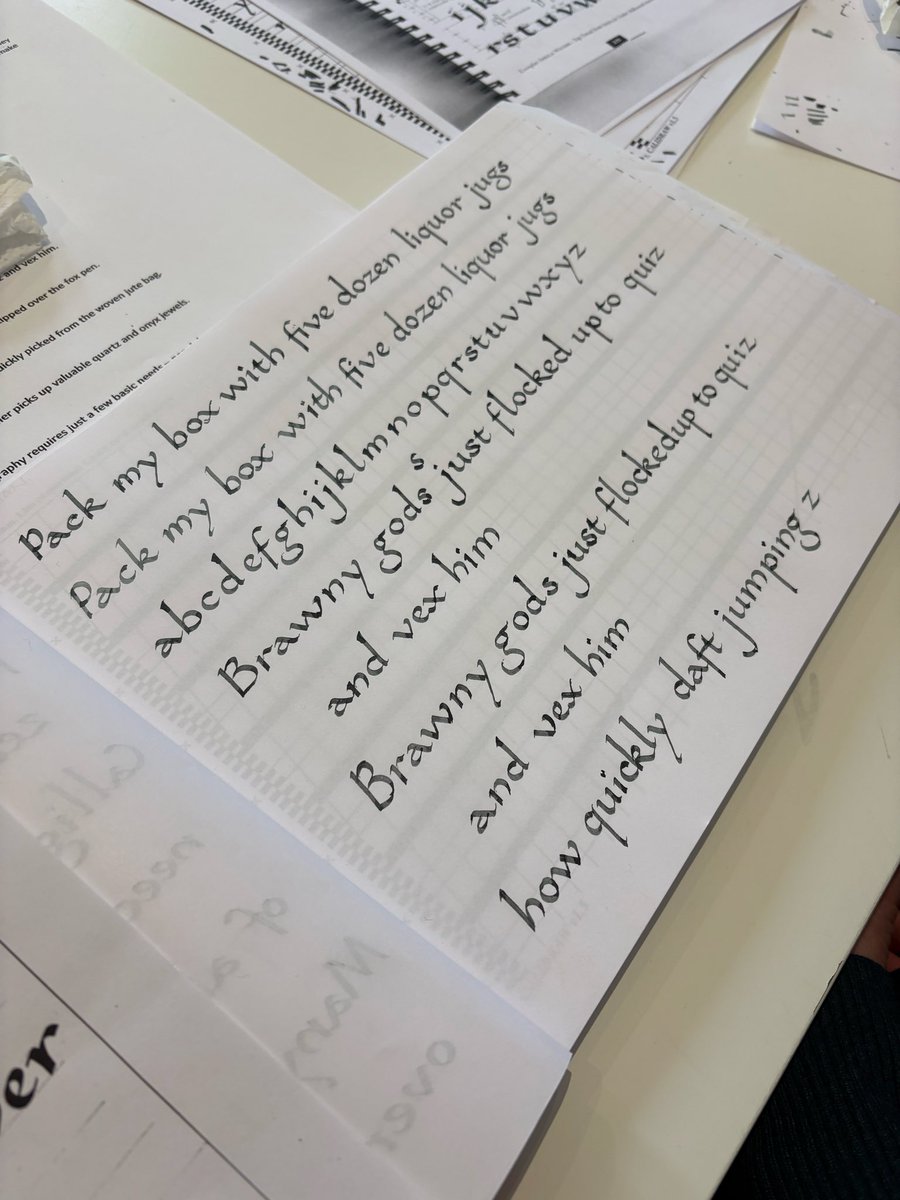 ijk
rstuvw
and vex him.
ipped over the fox pen.
uickly picked from the woven jute bag.
er picks up valuable quartz and onyx jewels.
aphy requires just a few basic needs
Pack my box with five dozen liquor jugs
Pack my box with five dozen liquor jugs
abcdefghijklmnopqrstuvwxyz
s
Brawny gods just flocked up to quiz
and vex him
Brawny gods just flocked up to quiz
and vex him
how quickly daft jumping z
need
of a
Many
over
er